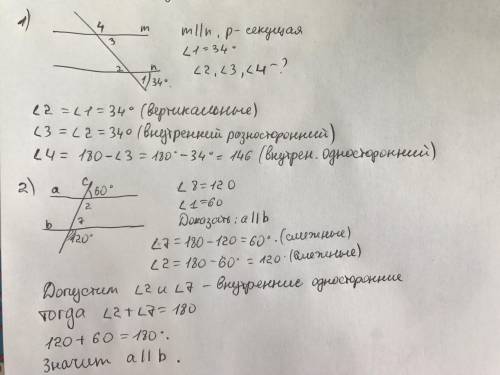 1)
4 m
3
2 n
1 34°
m||n, p - секущая
∠1=34°
∠2, ∠3, ∠4 - ?
∠2 = ∠1 = 34° (вертикальные)
∠3 = ∠2 = 34° (внутренний разносторонний)
∠4 = 180-∠3 = 180°-34° = 146 (внутрен. односторонний)
2)
a c 60°
2
b 7
120°
∠8=120
∠1=60
Доказать: a||b
∠7 = 180-120=60° (смежные)
∠2 = 180-60° = 120° (смежные)
Допустим ∠2 и ∠7 - внутренние односторонние
тогда ∠2+∠7=180
120+60=180°.
Значит a||b.